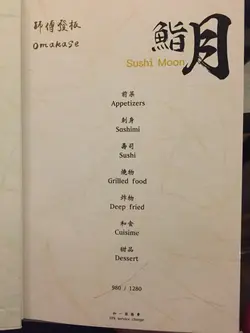 師傅發板
omakase
鮨月
Sushi Moon
前菜
Appetizers
刺身
Sashimi
壽司
Sushi
燒物
Grilled food
炸物
Deep fried
和食
Cuisime
甜品
Dessert
980 / 1280
加一服務費
10% service charge